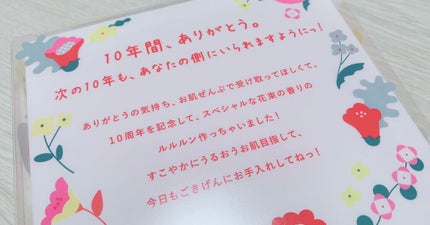 10年間、ありがとう。
次の10年も、あなたの側にいられますようにっ!
ありがとうの気持ち、お肌ぜんぶで受け取ってほしくて、
10周年を記念して、スペシャルな花束の香りの
ルルルン作っちゃいました!
すこやかにうるおうお肌目指して、
今日もごきげんにお手入れしてねっ!